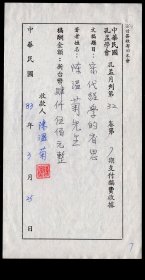 中華民國
孔孟學會 孔孟月刊第32卷第7期支付稿費收據
文稿題目：宋代經學的省思
著者姓名：陳溫菊先生
稿酬金額：新台幣肆仟伍佰元整
收款人 陳溫菊
中華民國83年3月25日
7